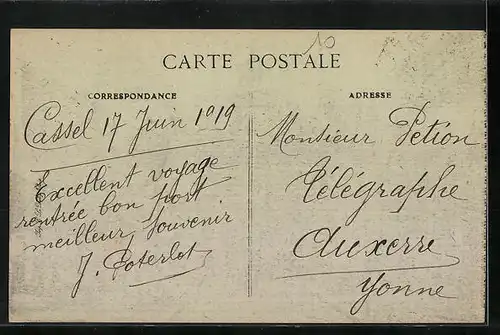 10
CARTE POSTALE
CORRESPONDANCE
Cassel 17 Juin 1919
Excellent voyage
rentrée bon port
meilleur souvenir
J. Poterlot
ADRESSE
Monsieur Petion
Télégraphe
Auxerre
Yonne